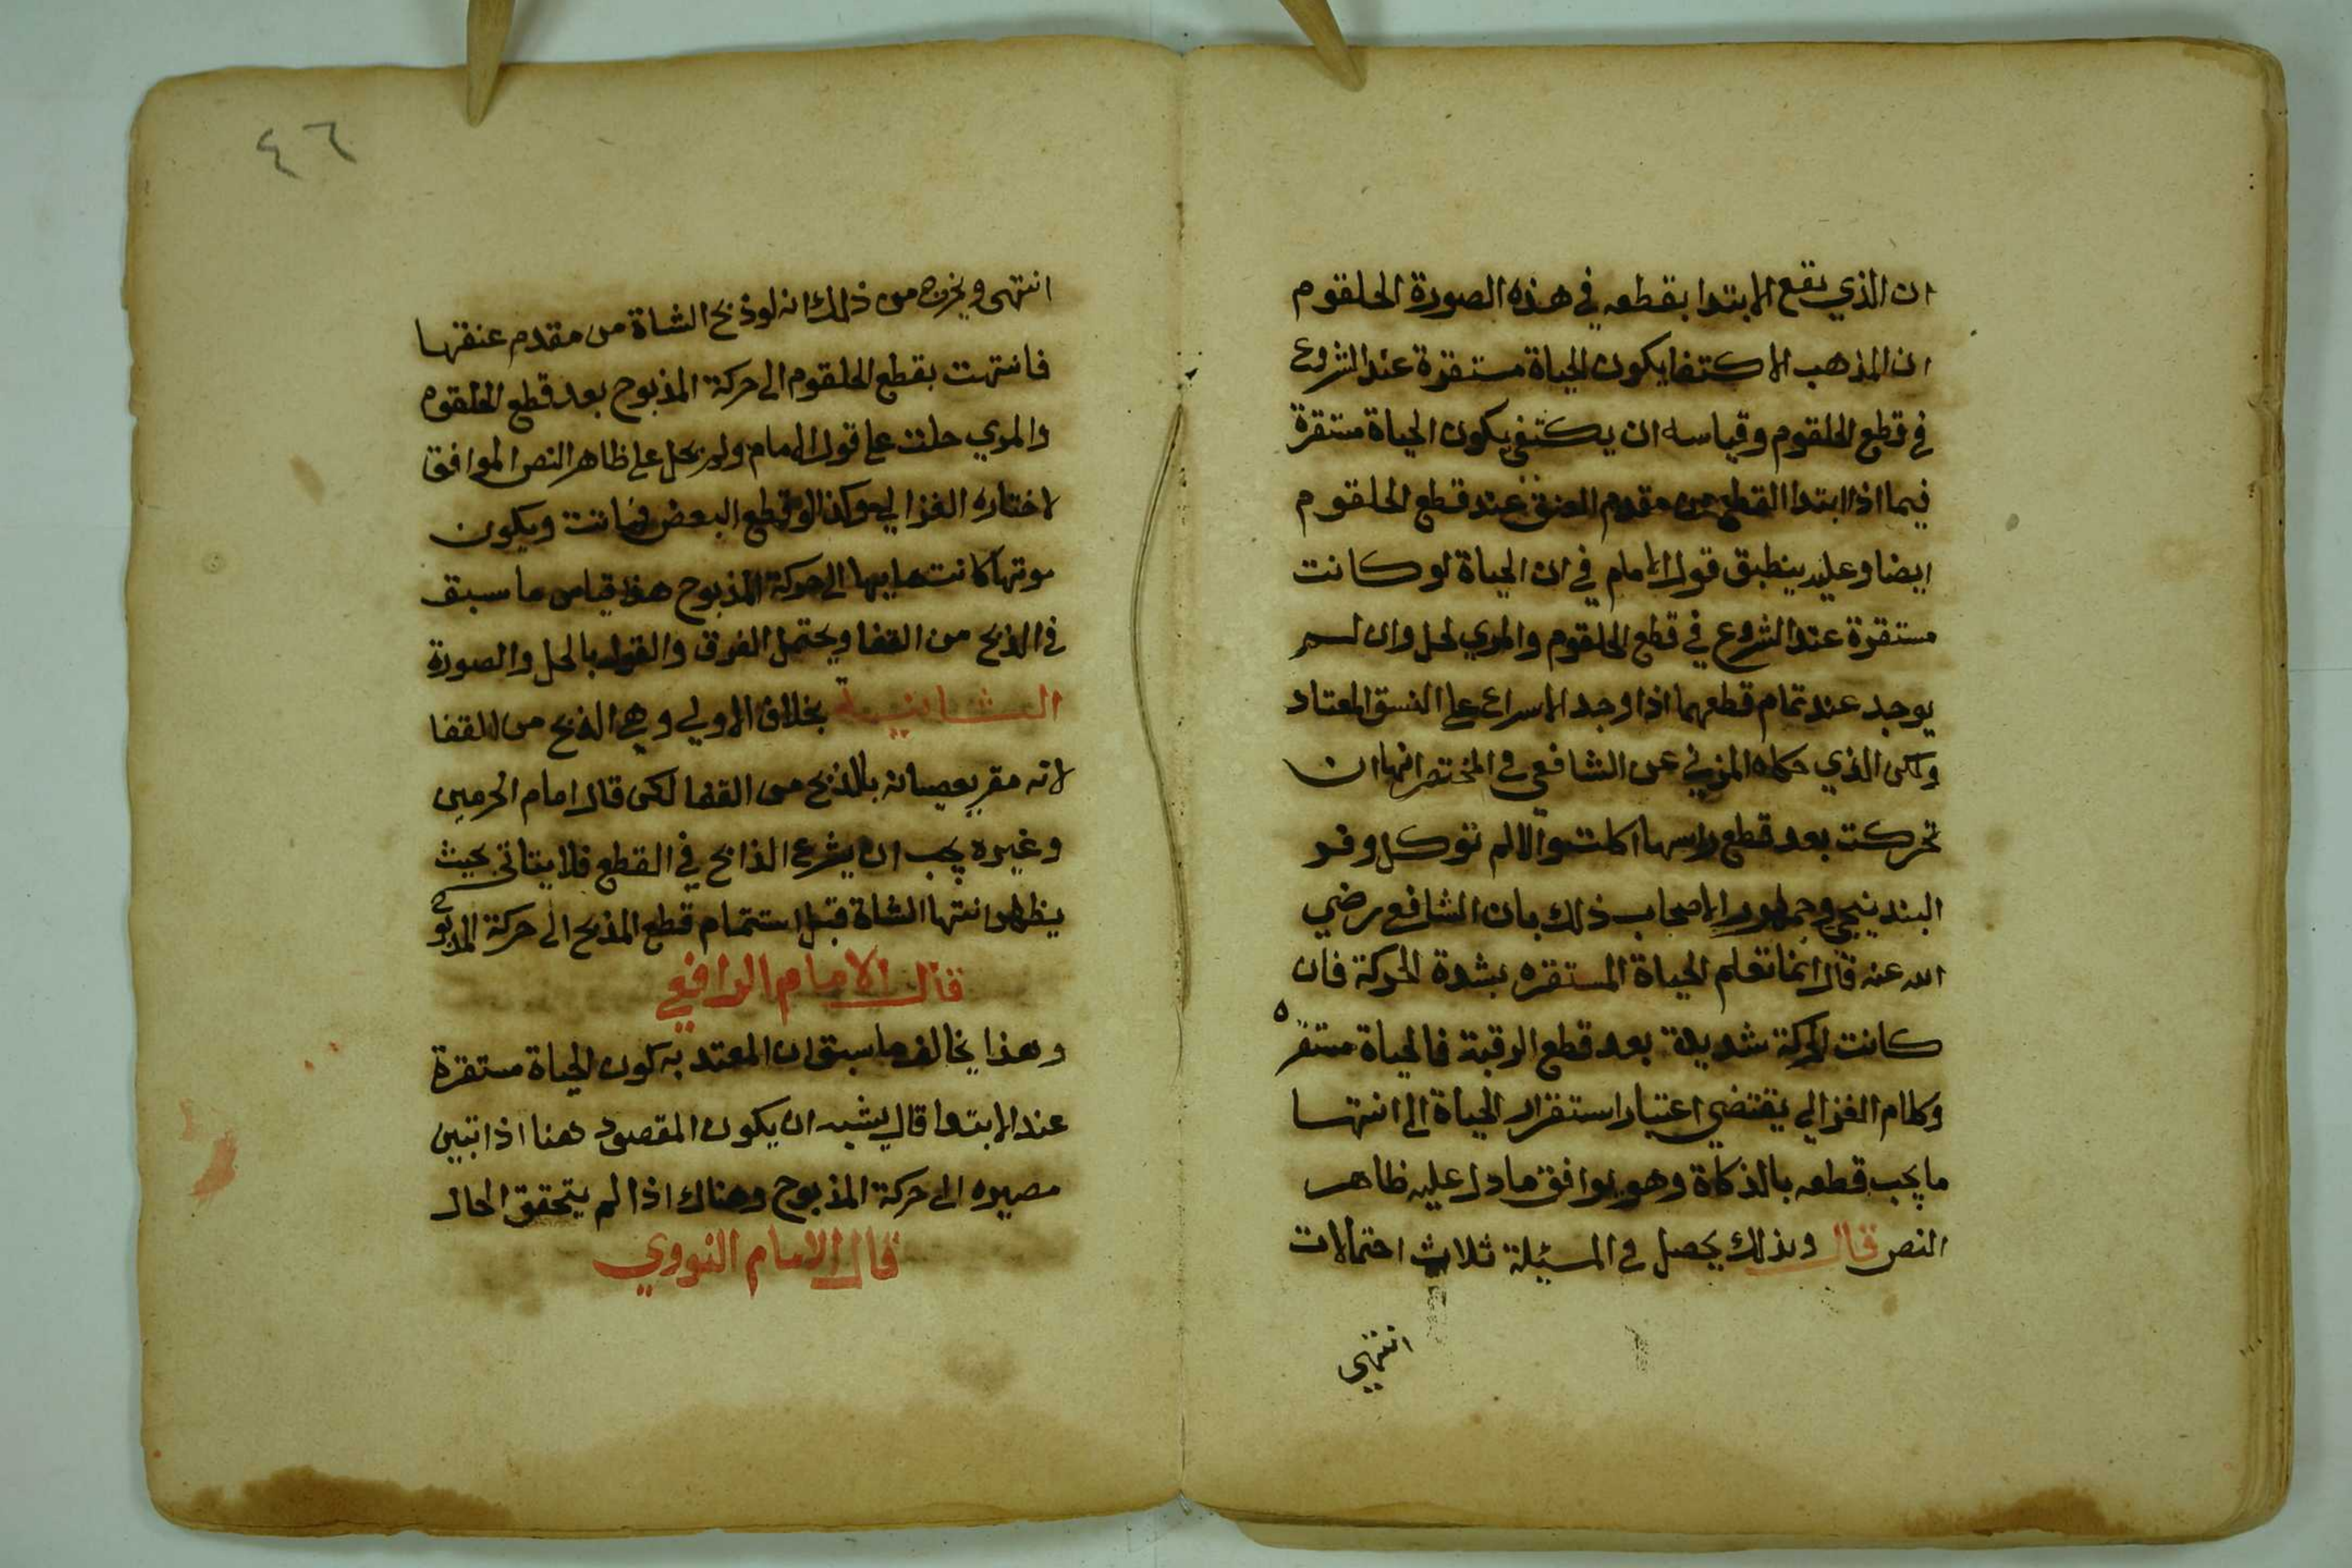 ان الذي يقع الابتدا بقطعه في هذه الصورة الحلقوم
ان المذهب الاكتفا بكون الحياة مستقرة عند الشروع
في قطع الحلقوم وقياسه ان يكتفي بكون الحياة مستقرة
فيما اذا ابتدا القطع من مقدم العنق عند قطع الحلقوم
ايضا وعليه ينطبق قول الامام في ان الحياة لو كانت
مستقرة عند الشروع في قطع الحلقوم والمري لحل وان لم
يوجد عند تمام قطعهما اذا وجد الاسراع على النسق المعتاد
ولكن الذي حكاه المزني عن الشافعي في المختصر انها ان
تحركت بعد قطع راسها اكلت والا لم توكل وقد
البندنيجي وجمهور الاصحاب ذلك بان الشافعي رضي
الله عنه قال انما تعلم الحياة المستقره بشدة الحركة فان
كانت الحركة شديدة بعد قطع الرقبة فالحياة مستقره
وكلام الغزالي يقتضي اعتبار استقرار الحياة الى انتها
ما يجب قطعه بالذكاة وهو يوافق ما دل عليه ظاهر
النص قال وبذلك يحصل في المسئلة ثلاث احتمالات
انتهى
٤٦
انتهى ويخرج من ذلك انه لو ذبح الشاة من مقدم عنقها
فانتهت بقطع الحلقوم الى حركة المذبوح بعد قطع الحلقوم
والمري حلت على قول الامام ولم تحل على ظاهر النص الموافق
لاختاره الغزالي وكذا لو قطع البعض فماتت ويكون
موتها كانتهايها الى حركة المذبوح هذا قياس ما سبق
في الذبح من القفا ويحتمل الفرق والقول بالحل والصورة
الثانية بخلاف الاولي وهي الذبح من القفا
لانه مقر بعصيانه بالذبح من القفا لكن قال امام الحرمين
وغيره يجب ان يشرع الذابح في القطع فلا يتاتى بحيث
يظهر انتها الشاة قبل استتمام قطع المذبح الى حركة المذبوح
قال الامام الرافعي
وهذا يخالف ما سبق ان المعتد به كون الحياة مستقرة
عند الابتدا قال يشبه ان يكون المقصود هنا اذا تبين
مصيره الى حركة المذبوح وهناك اذا لم يتحقق الحال
قال الامام النووي